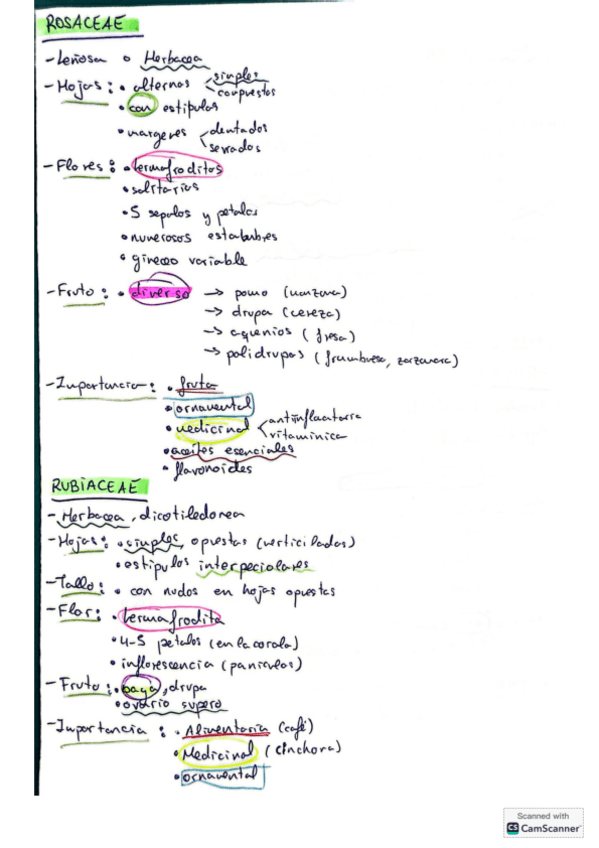 ROSACEAE
- Leñosa o Herbacea
- Hojas: • alternas < simples
compuestos
• con estipulas
• margenes < dentados
serrados
- Flores: • hermafroditos
• solitarias
• 5 sepalos y petalos
• numerosos estambres
• gineceo variable
- Fruto: • diverso → pomo (manzana)
→ drupa (cereza)
→ aquenios (fresa)
→ polidrupas (frambuesa, zarzamora)
- Importancia: • fruta
• ornamental
• medicinal < antiinflamatoria
vitaminica
• aceites esenciales
• flavonoides
RUBIACEAE
- Herbacea, dicotiledonea
- Hojas: • simples, opuestas (verticiladas)
• estipulas interpeciolares
- Tallo: • con nudos en hojas opuestas
- Flor: • hermafrodita
• 4-5 petalos (en la corola)
• inflorescencia (paniculas)
- Fruto: • baya, drupa
• ovario supero
- Importancia: • Alimentaria (café)
• Medicinal (cinchona)
• ornamental
Scanned with
CS CamScanner